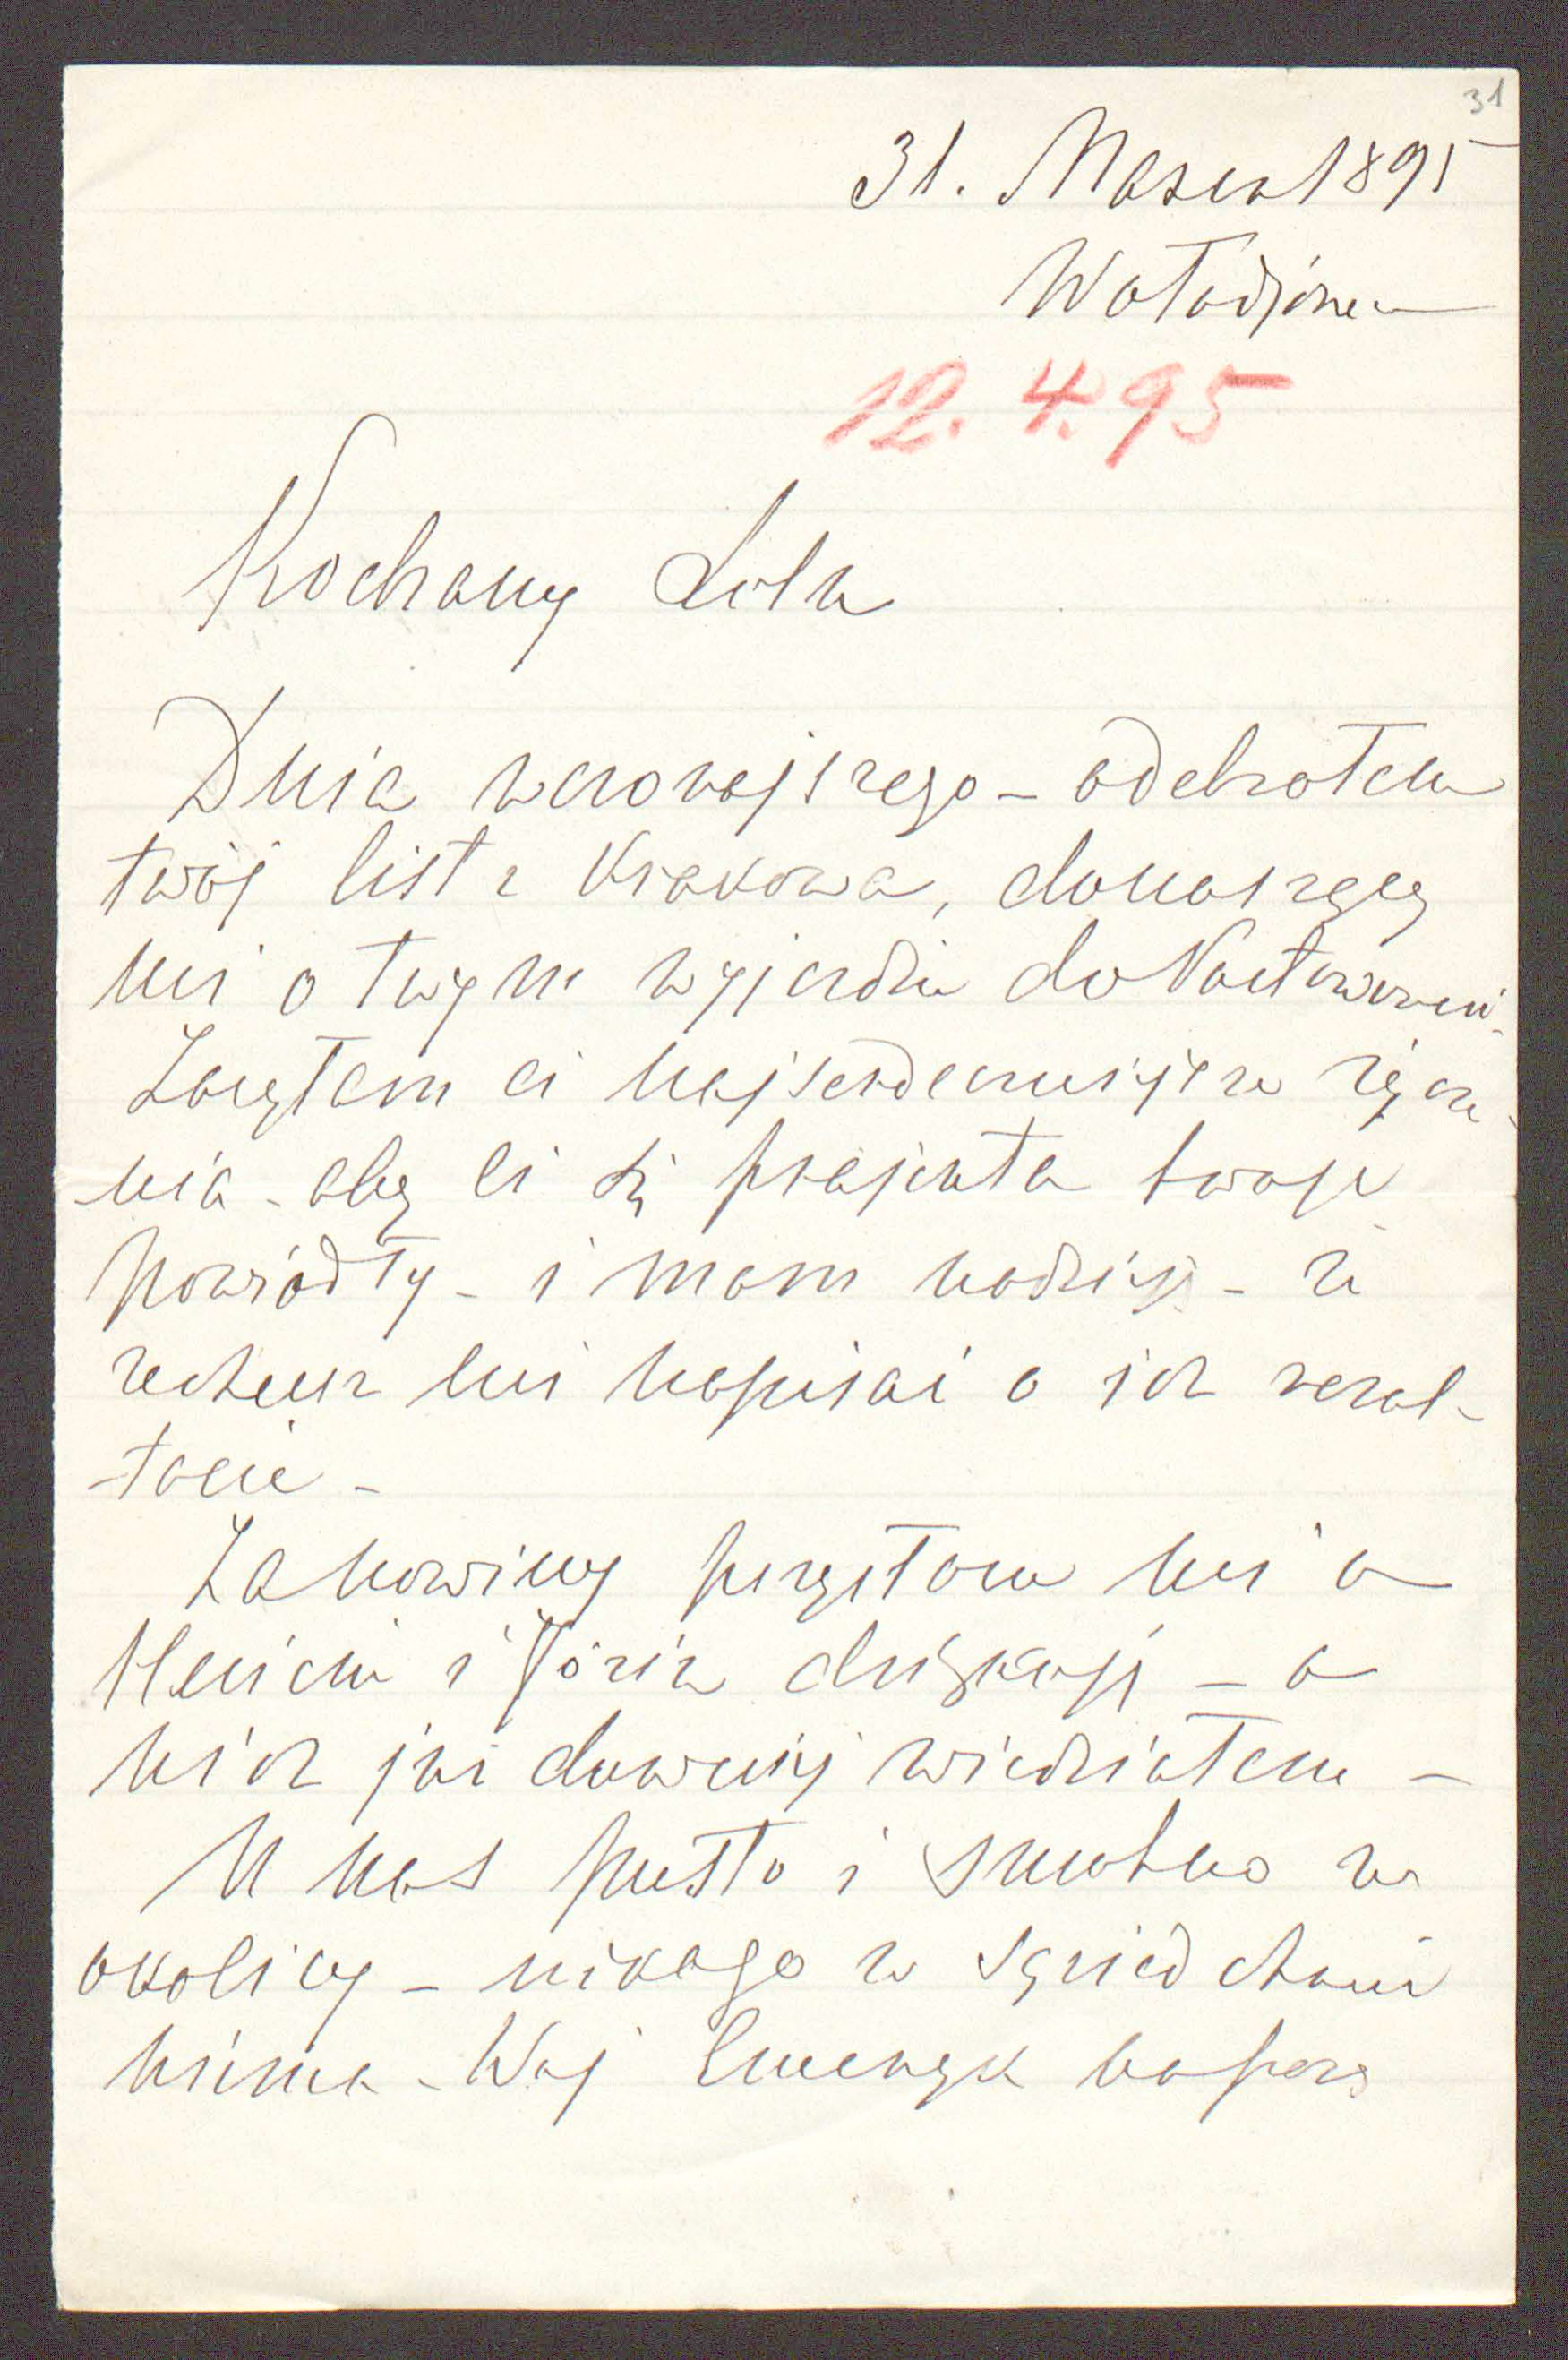 31
31. Marca 1895
Wołodjówce
12. 4. 95
Kochany Lolu
Dnia wczorajszego – odebrałem
twój list z Krakowa, donoszący
mi o twym wyjeździe do
Załączam ci najserdeczniejsze życze-
nia – aby ci się projekta twoje
powiodły – i mam nadzieję – że
zechcesz mi napisać o ich rezul-
tacie –
Za nowiny przysłane mi o
Heniem i Józiu dziękuję – o
nich już dawniej wiedziałem –
U nas pusto i smutno w
okolicy – nikogo w sąsiedztwie
niema – Wuj Emeryk